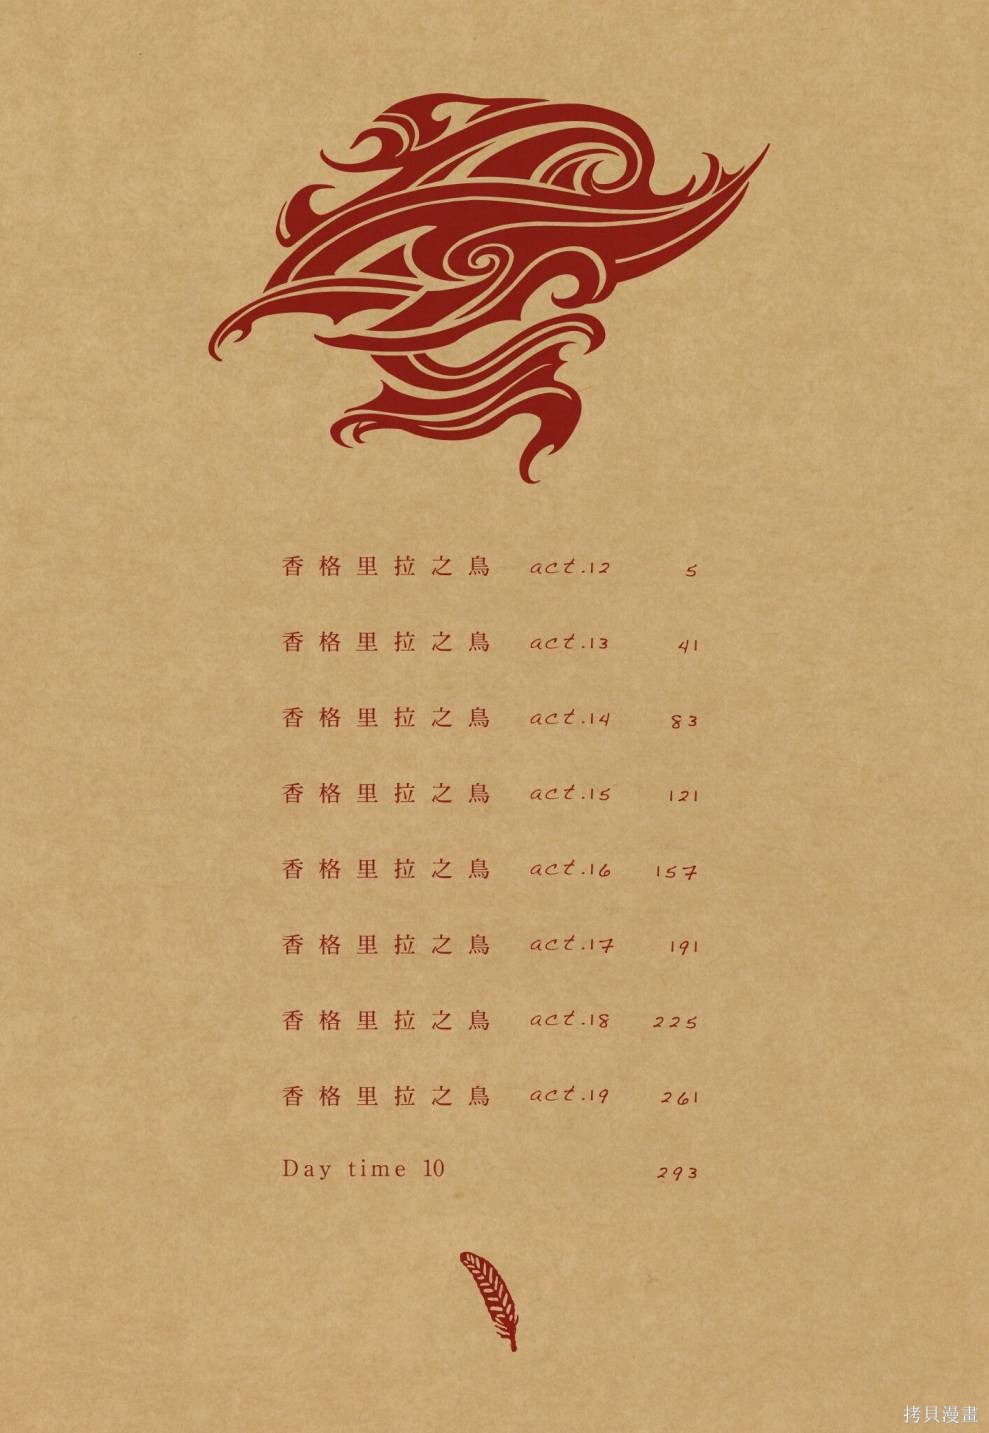 香格里拉之鳥 act.12 5
香格里拉之鳥 act.13 41
香格里拉之鳥 act.14 83
香格里拉之鳥 act.15 121
香格里拉之鳥 act.16 157
香格里拉之鳥 act.17 191
香格里拉之鳥 act.18 225
香格里拉之鳥 act.19 261
Day time 10 293
拷貝漫畫